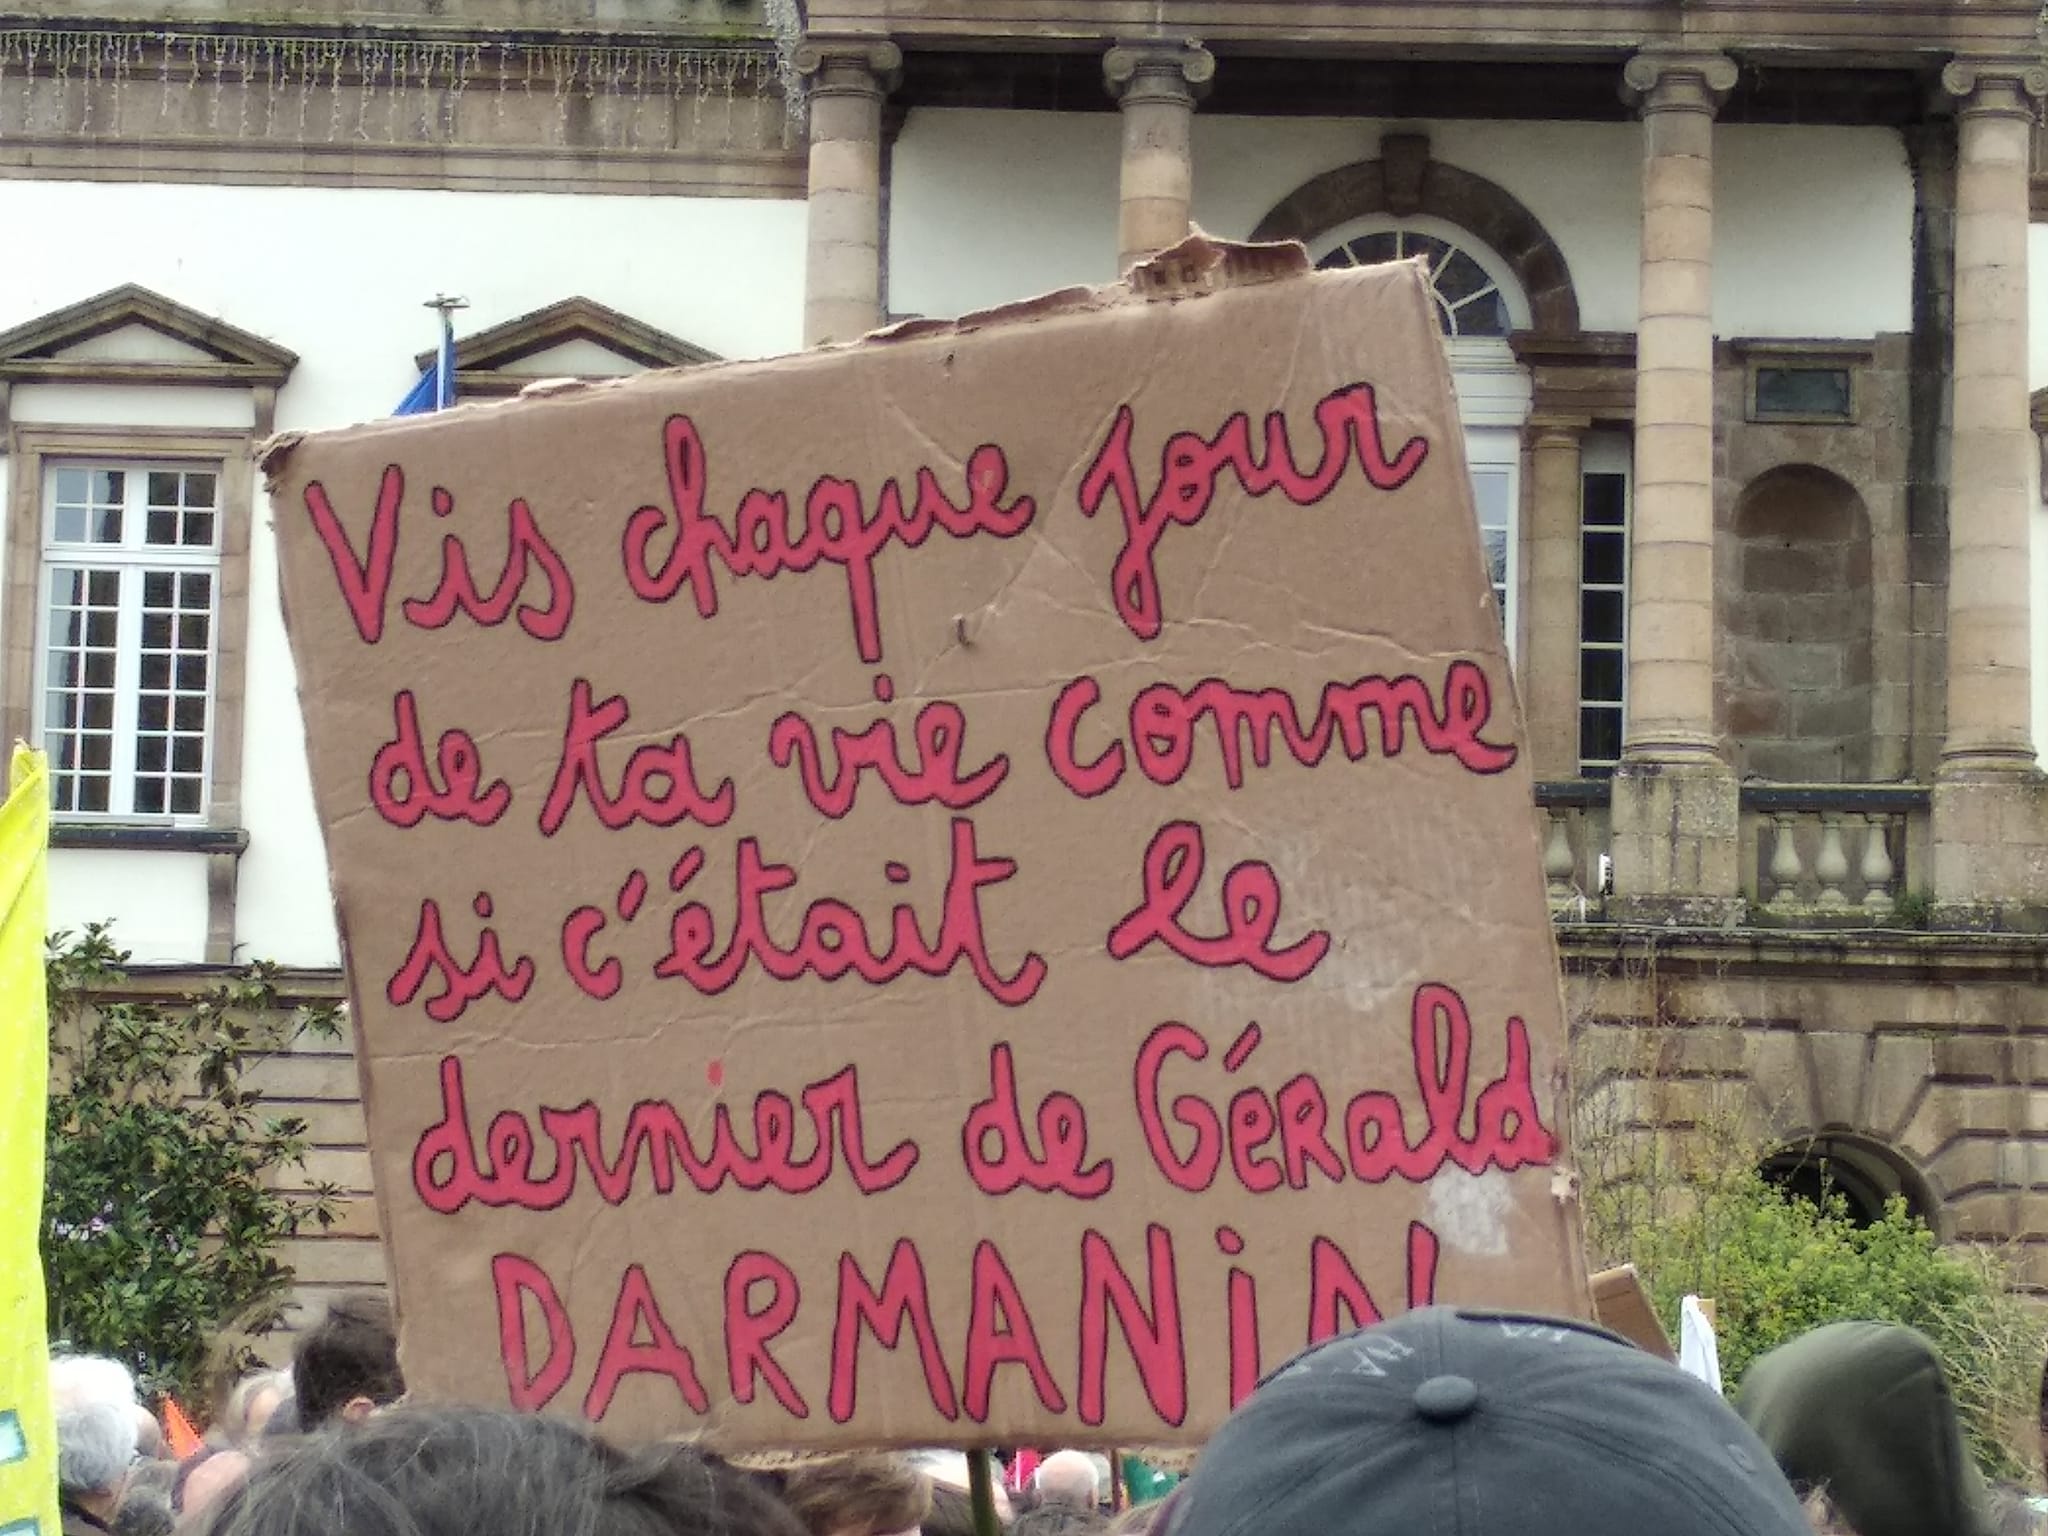 Vis chaque jour
de ta vie comme
si c'était le
dernier de Gérald
DARMANiN